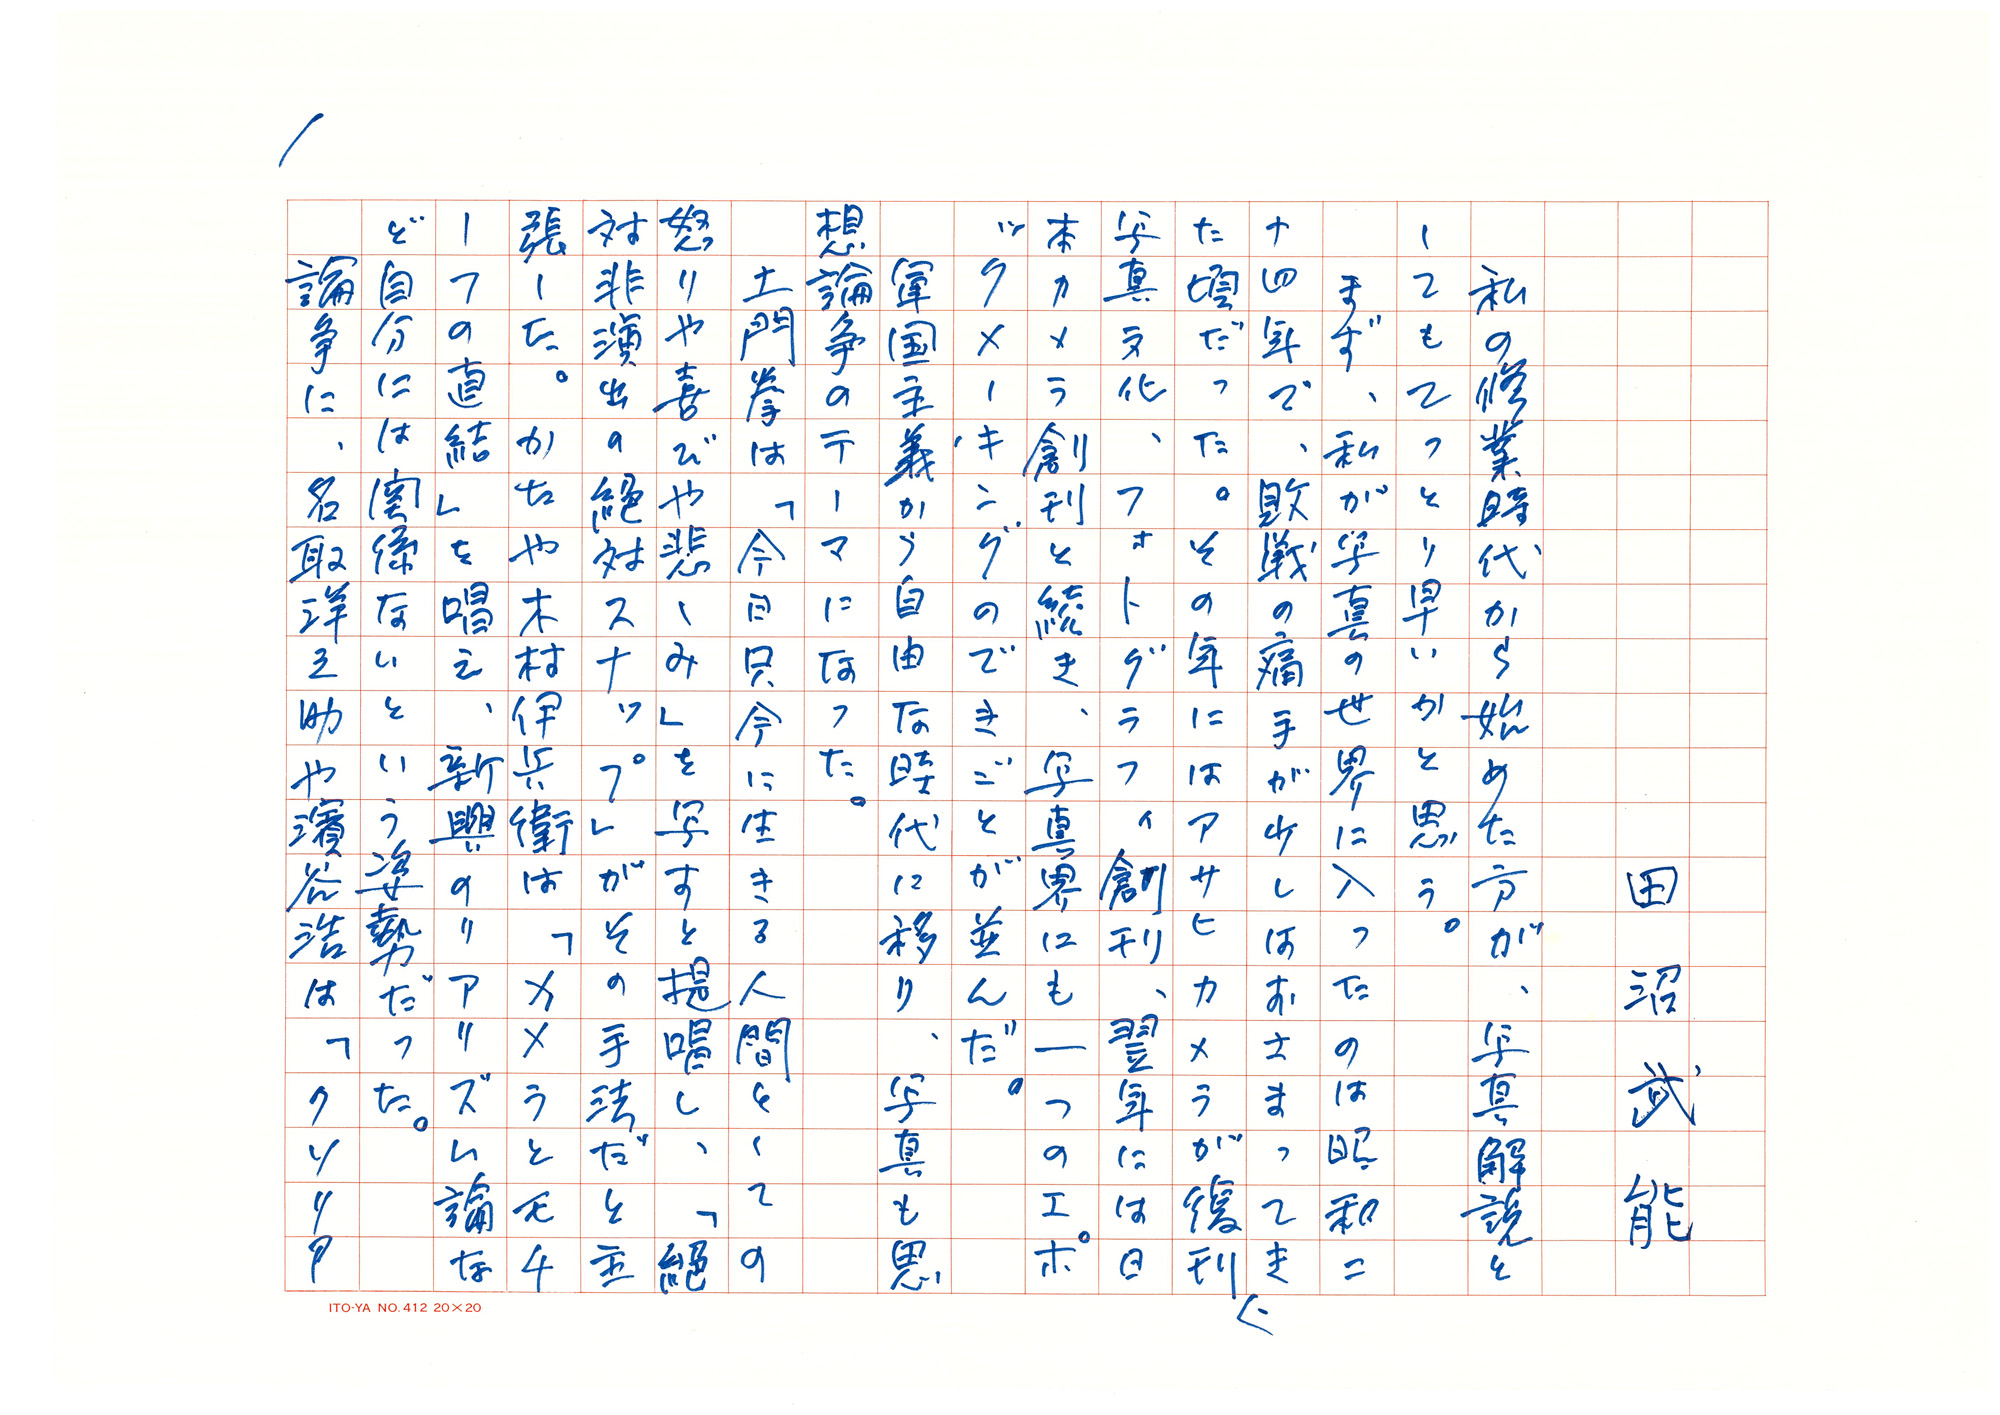 1
田沼武能
私の修業時代から始めた方が、写真解説と
してもてっとり早いかと思う。
まず、私が写真の世界に入ったのは昭和二
十四年で、敗戦の痛手が少しはおさまってき
た頃だった。その年にはアサヒカメラが復刊し
写真文化、フォトグラフィ創刊、翌年には日
本カメラ創刊と続き、写真界にも一つのエポ
ックメーキングのできごとが並んだ。
軍国主義から自由な時代に移り、写真も思
想論争のテーマになった。
土門拳は「今日只今に生きる人間としての
怒りや喜びや悲しみ」を写すと提唱し、「絶
対非演出の絶対スナップ」がその手法だと主
張した。かたや木村伊兵衛は「カメラとモチ
ーフの直結」を唱え、新興のリアリズム論な
ど自分には関係ないという姿勢だった。
論争に、名取洋之助や濱谷浩は「クソリア
ITO-YA NO.412 20×20